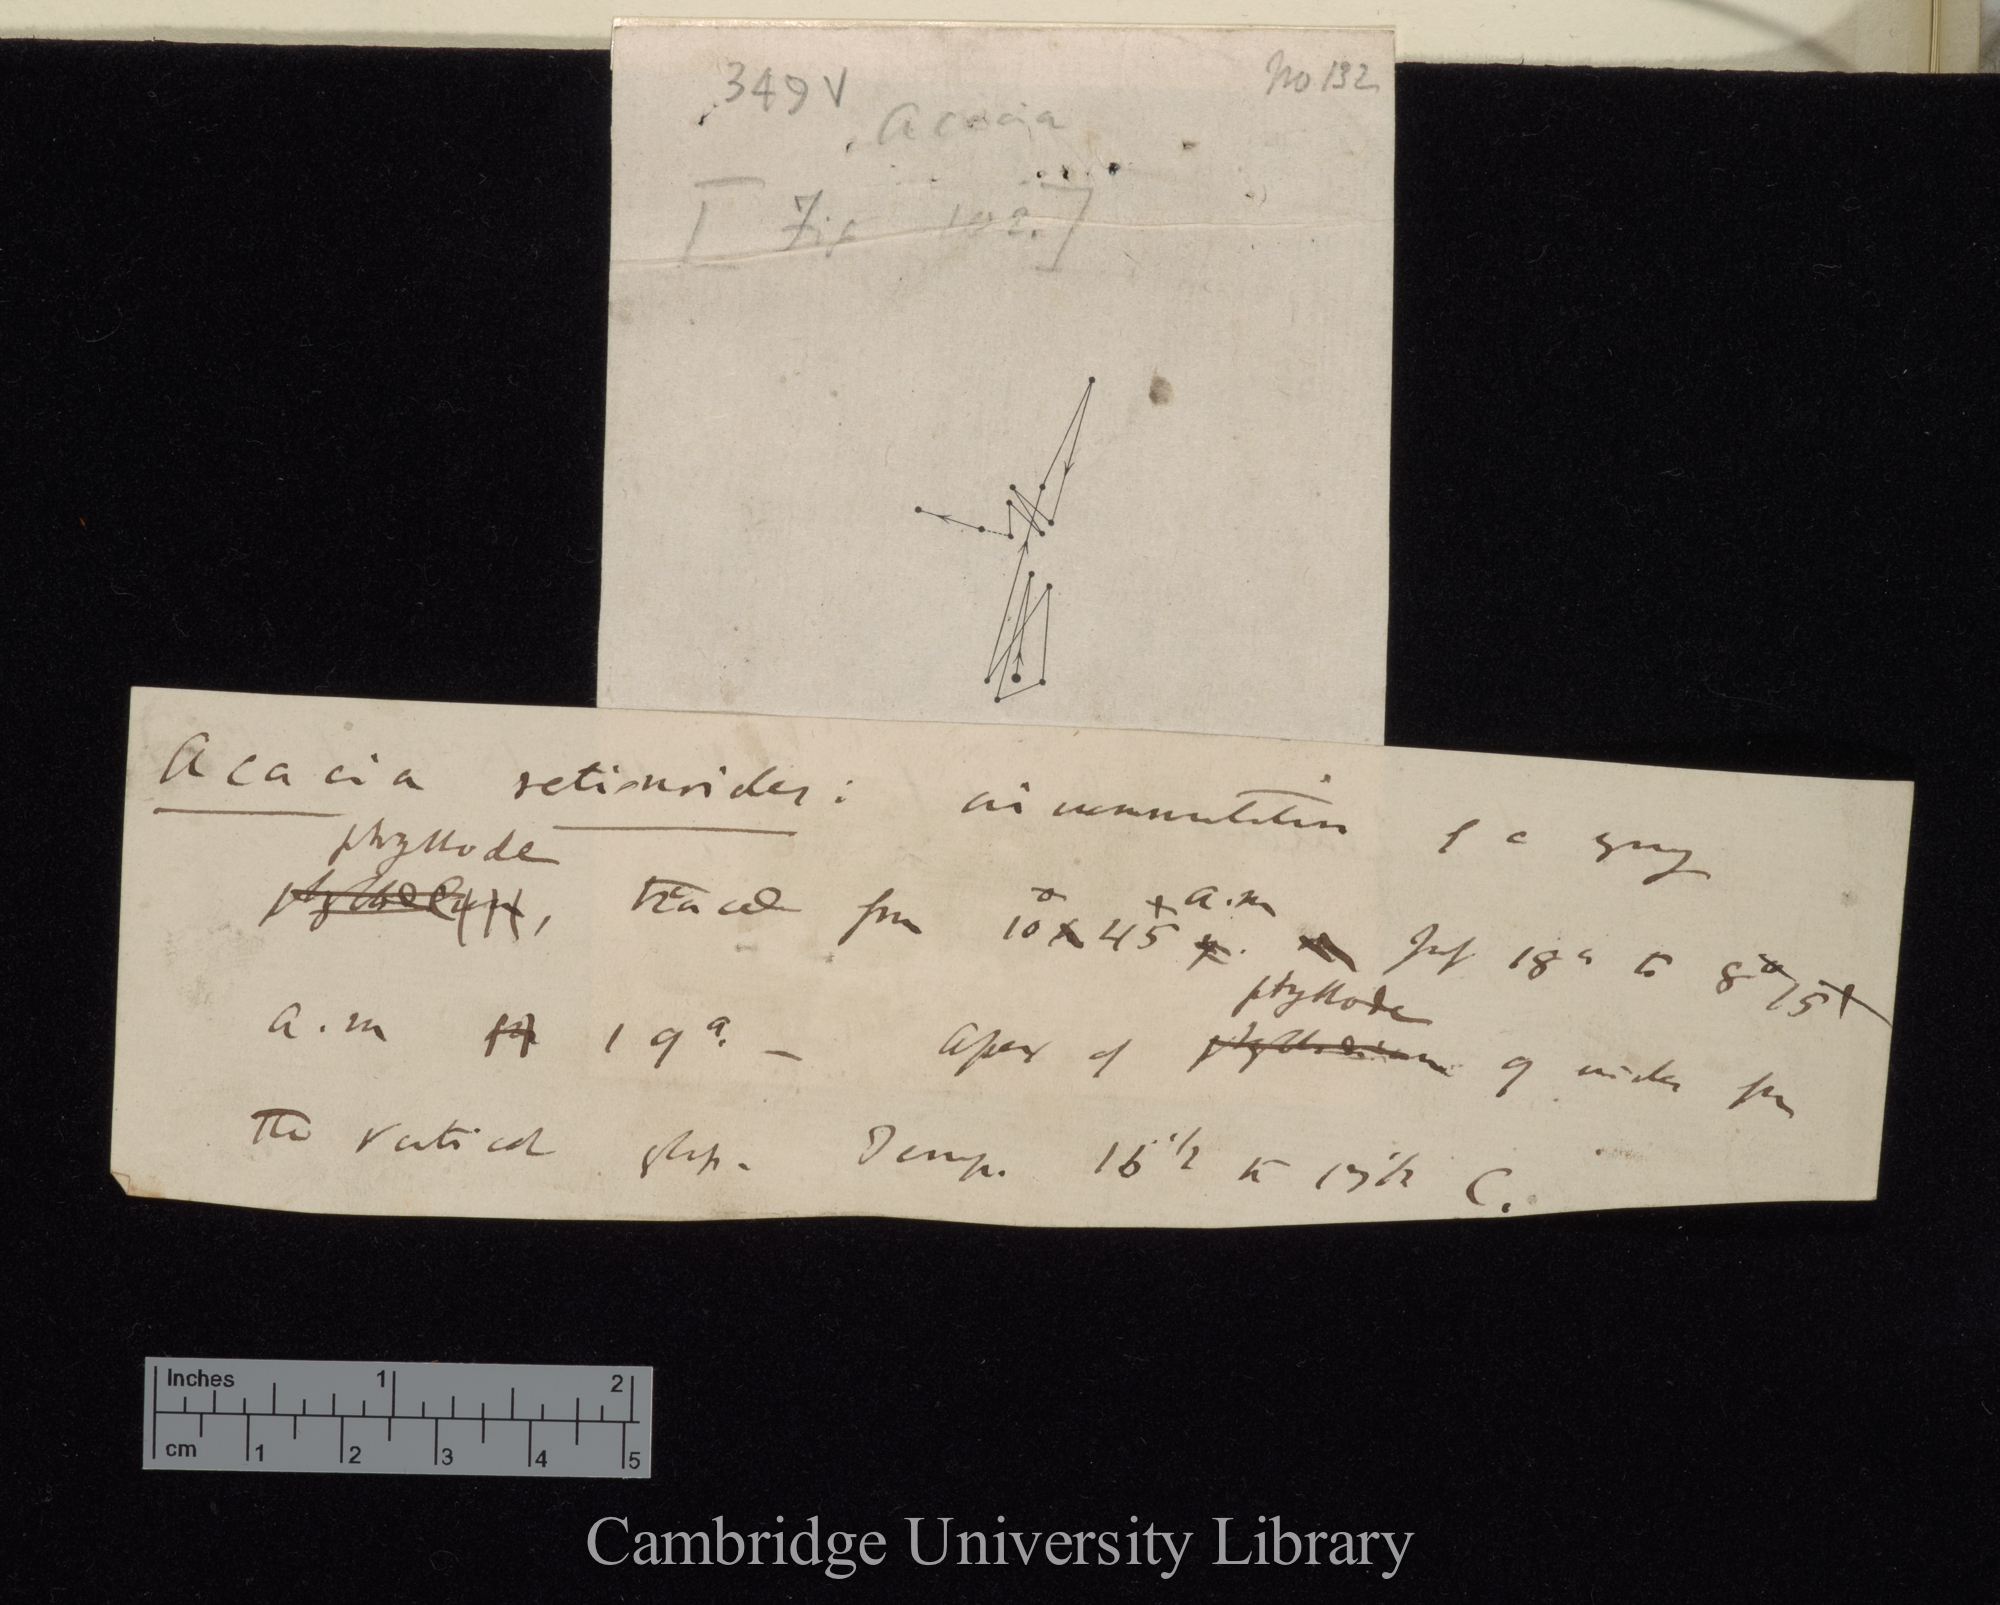 349 V
No 132
Acacia
[Fig 102.]
Acacia retinoides: circumnutation of a young
phyllode
, traced from 10° 45' a.m July 18th to 8° 15'
phyllode
a.m 19th. — Apex of 9 inches from
the vertical glass. Temp. 16 1/2 to 17 1/2 C.
Inches 1 2
cm 1 2 3 4 5
Cambridge University Library